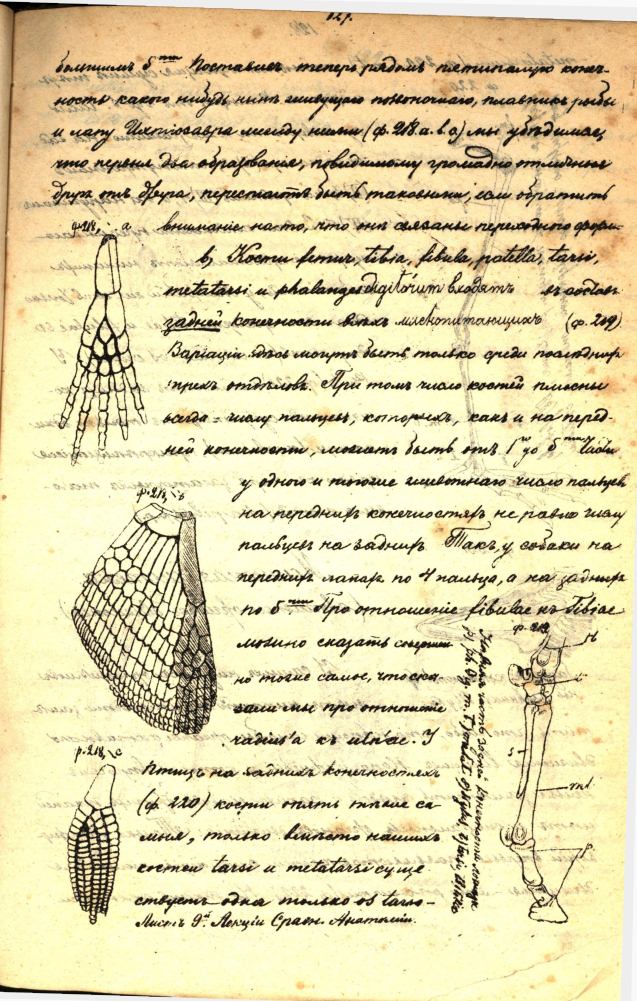 127.
большимъ 5тии. Поставивъ теперь рядомъ пятипалую конеч-
ность какого нибудь нынѣ живущаго позвоночнаго, плавникъ рыбы
и лапу Ихтіозавра между ними (ф. 218. а. в. с) мы убѣдимся,
что первыя два образованія, повидимому громадно отличные
другъ отъ друга, перестаютъ быть таковыми, если обратить
ф. 218, а
вниманіе на то, что они связаны переходною фор-
в, Кости femur, tibia, fibula, patella, tarsi,
metatarsi и phalanges digitórum входятъ въ составъ
задней конечности всѣхъ млекопитающихъ (ф. 219)
Варіаціи здѣсь могутъ быть только среди послѣднихъ
трехъ отдѣловъ. При томъ число костей плюсны
всегда = числу пальцевъ, которыхъ, какъ и на перед-
ней конечности, можетъ быть отъ 1го до 5ти.
у одного и того же животнаго число пальцевъ
ф. 218, в
на переднихъ конечностяхъ не равно числу
пальцевъ на заднихъ. Такъ, у собаки на
переднихъ лапахъ по 4 пальца, а на заднихъ
по 5ти. Про отношеніе fibulae къ tibiae
можно сказать совершен-
но тоже самое, что ска-
зали мы про отношеніе
radius'а къ uln'ае. У
птицъ на заднихъ конечностяхъ
(ф. 220) кости опять тѣже са-
мыя, только вмѣсто нашихъ
костей tarsi и metatarsi суще
ствуетъ одна только os tarso-
Листъ 9й Лекціи Сравн. Анатоміи.
ф. 218, с
ф. 219
часть задней конечности лошади
s
mt
p.